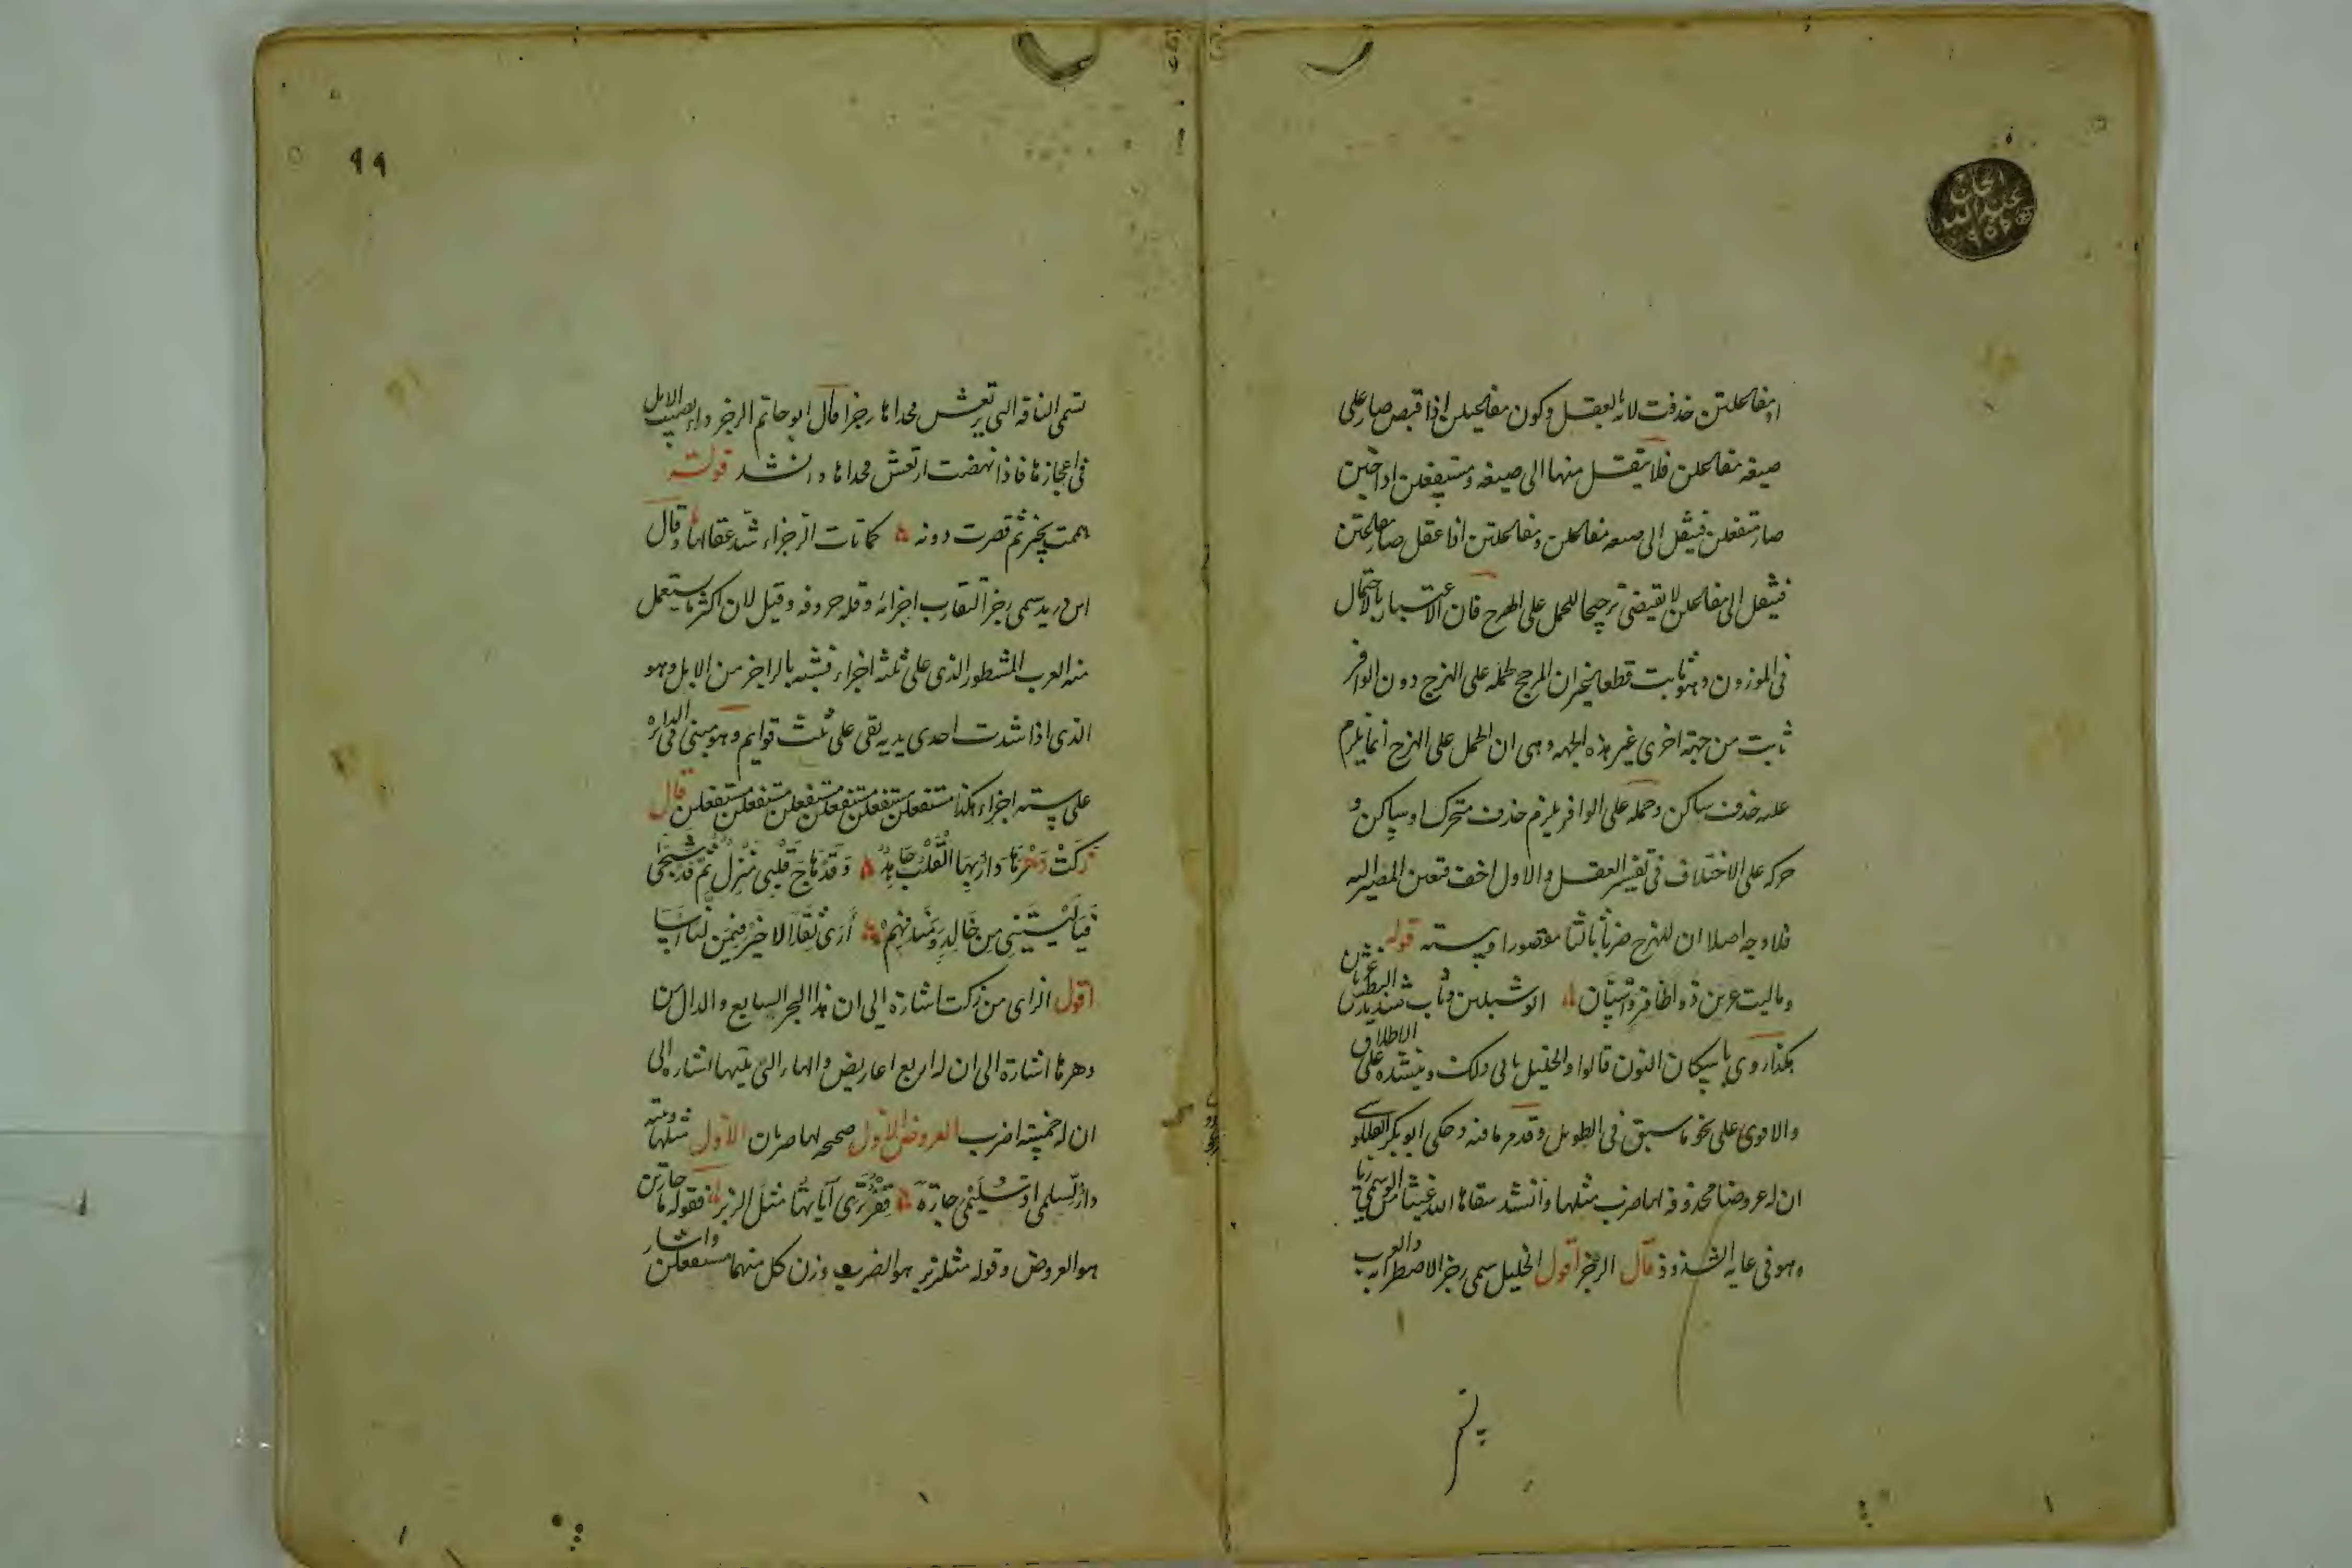 او مفاعلتن حذفت لامه بالعقل وكون مفاعيلن اذا قبض صار على
صيغه مفاعلن فلا ينقل منها الى صيغه ومستفعلن اذا خبن
صار متفعلن فينقل الى صيغه مفاعلن ومفاعلتن اذا عقل صار مفاعتن
فينقل الى مفاعلن لا يقتضى ترجيحا للحمل على الهزج فان الاعتبار بالاحتمال
فى الموزون وهو ثابت قطعا نخبر ان المرجح لحمله على الهزج دون الوافر
ثابت من جهة اخرى غير هذه الجهه وهى ان الحمل على الهزج انما يلزم
عليه حذف ساكن وحمله على الوافر يلزم حذف متحرك او ساكن و
حركه على الاختلاف فى تفسير العقل والاول اخف فتعين المصير اليه
فلا وجه اصلا ان للهزج ضربا ثالثا مقصورا وبيته قوله
وما ليث عرين ذو اظافير واسنان ابو شبلين وثاب شديد البطش غرثان
هكذا روى باسكان النون قالوا والخليل يابى ذلك وينشده على الاطلاق
والاقوى على نحو ما سبق فى الطويل وقد مر ما فيه وحكى ابو بكر القللوسى
ان له عروضا محذوفه لها ضرب مثلها وانشد سقاها الله غيثا من الوسمى ريا
وهو فى غايه الشذوذ قال الرجز اقول الخليل سمى رجزا لاضطرابه والعرب
تسمى الناقه التى يرتعش فخذاها رجزا قال ابو حاتم الرجز داء يصيب الابل
فى اعجازها فاذا نهضت ارتعش فخذاها وانشد قوله
هممت بخير ثم قصرت دونه كما نات الرجزاء شد عقالها وقال
ابن دريد سمى رجزا لتقارب اجزائه وقله حروفه وقيل لان اكثر ما يستعمل
منه العرب المشطور الذى على ثلثه اجزاء فشبه بالراجز من الابل وهو
الذى اذا شدت احدى يديه بقى على ثلث قوايم وهو مبنى فى الدايره
على سته اجزاء هكذا مستفعلن مستفعلن مستفعلن مستفعلن مستفعلن مستفعلن قال
زكت دهرها دار بها القلب جاهد وقد هاج قلبى منزل ثم قد شجى
فيا ليتنى من خالد ومنهم ارى ثقلا لا خير فيمن لنا اسا
اقول الزاى من زكت اشارة الى ان هذا البحر السابع والدال من
دهرها اشارة الى ان له اربع اعاريض والهاء التى تليها اشاره الى
ان له خمسة اضرب العروض الاول صحيحه لها ضربان الاول مثلها وبيته
دار لسلمى اذ سليمى جارة قفر ترى آياتها مثل الزبر فقوله ما جارتن
هو العروض وقوله مثلزبر هو الضرب وزن كل منهما مستفعلن واشار